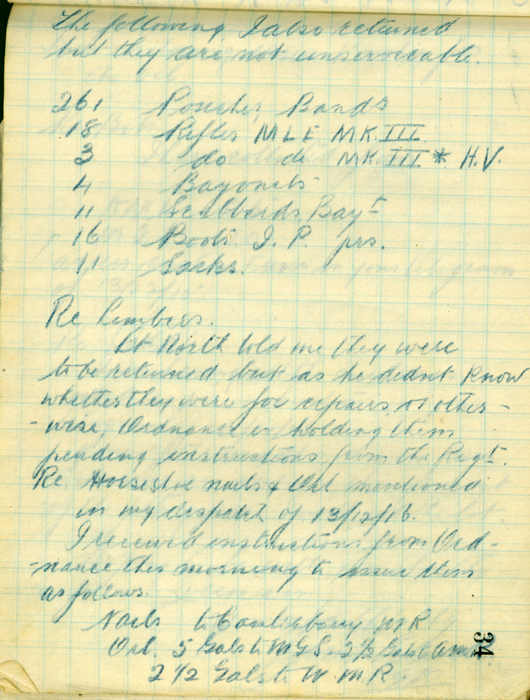 The following I also returned
but they are not unserviceable.
261 Pouches, Bands
18 Rifles MLE MK.III
3 do do MK III * H.V.
4 Bayonets
11 Scabbards, Bayt
16 Boots I.P. prs.
11 Sacks.
Re Limbers.
Lt North told me they were
to be returned but as he didn't know
whether they were for repairs or other-
-wise, Ordnance is holding them
pending instructions from the Regt.
Re. Horseshoe nails & Oil mentioned
in my despatch of 13/12/16.
I received instructions from Ord-
-nance this morning to issue them
as follows.
Nails to Canterbury M R
Oil. 5 Gals to M G S. 2½ Gals
2 1/2 Gals to W. M R.
34